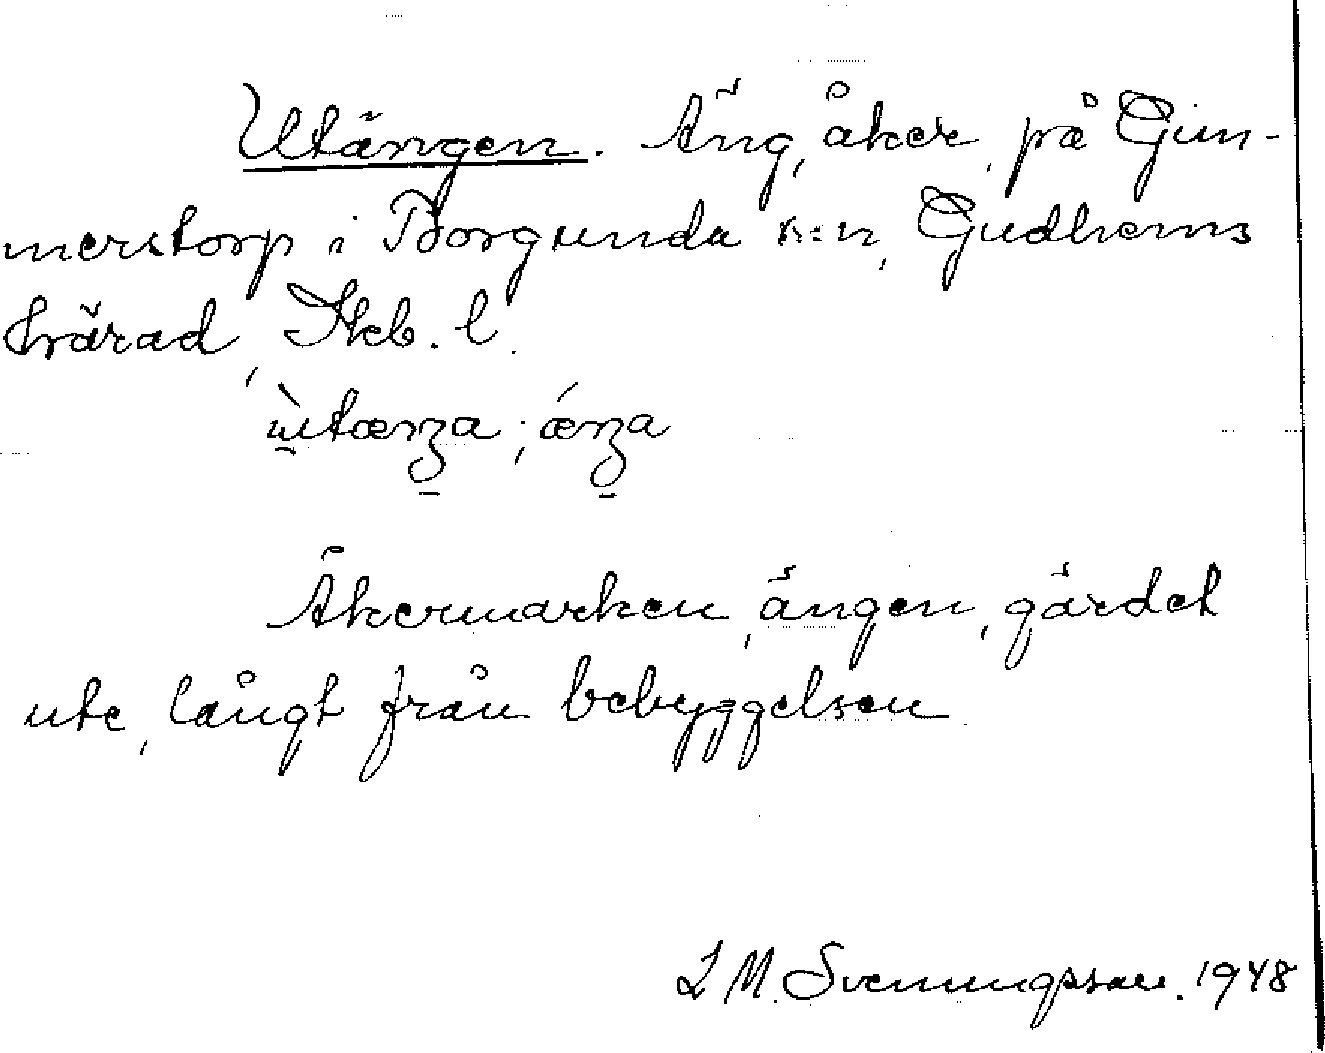 Utängen. Äng, åker, på Gun-
merstorp i Borgunda s:n, Gudhems
härad, Skb. l.
ùtænga; ǽnga
Åkermarken, ängen, gärdet
ute, långt från bebyggelsen.
L M. Svenungsson. 1948